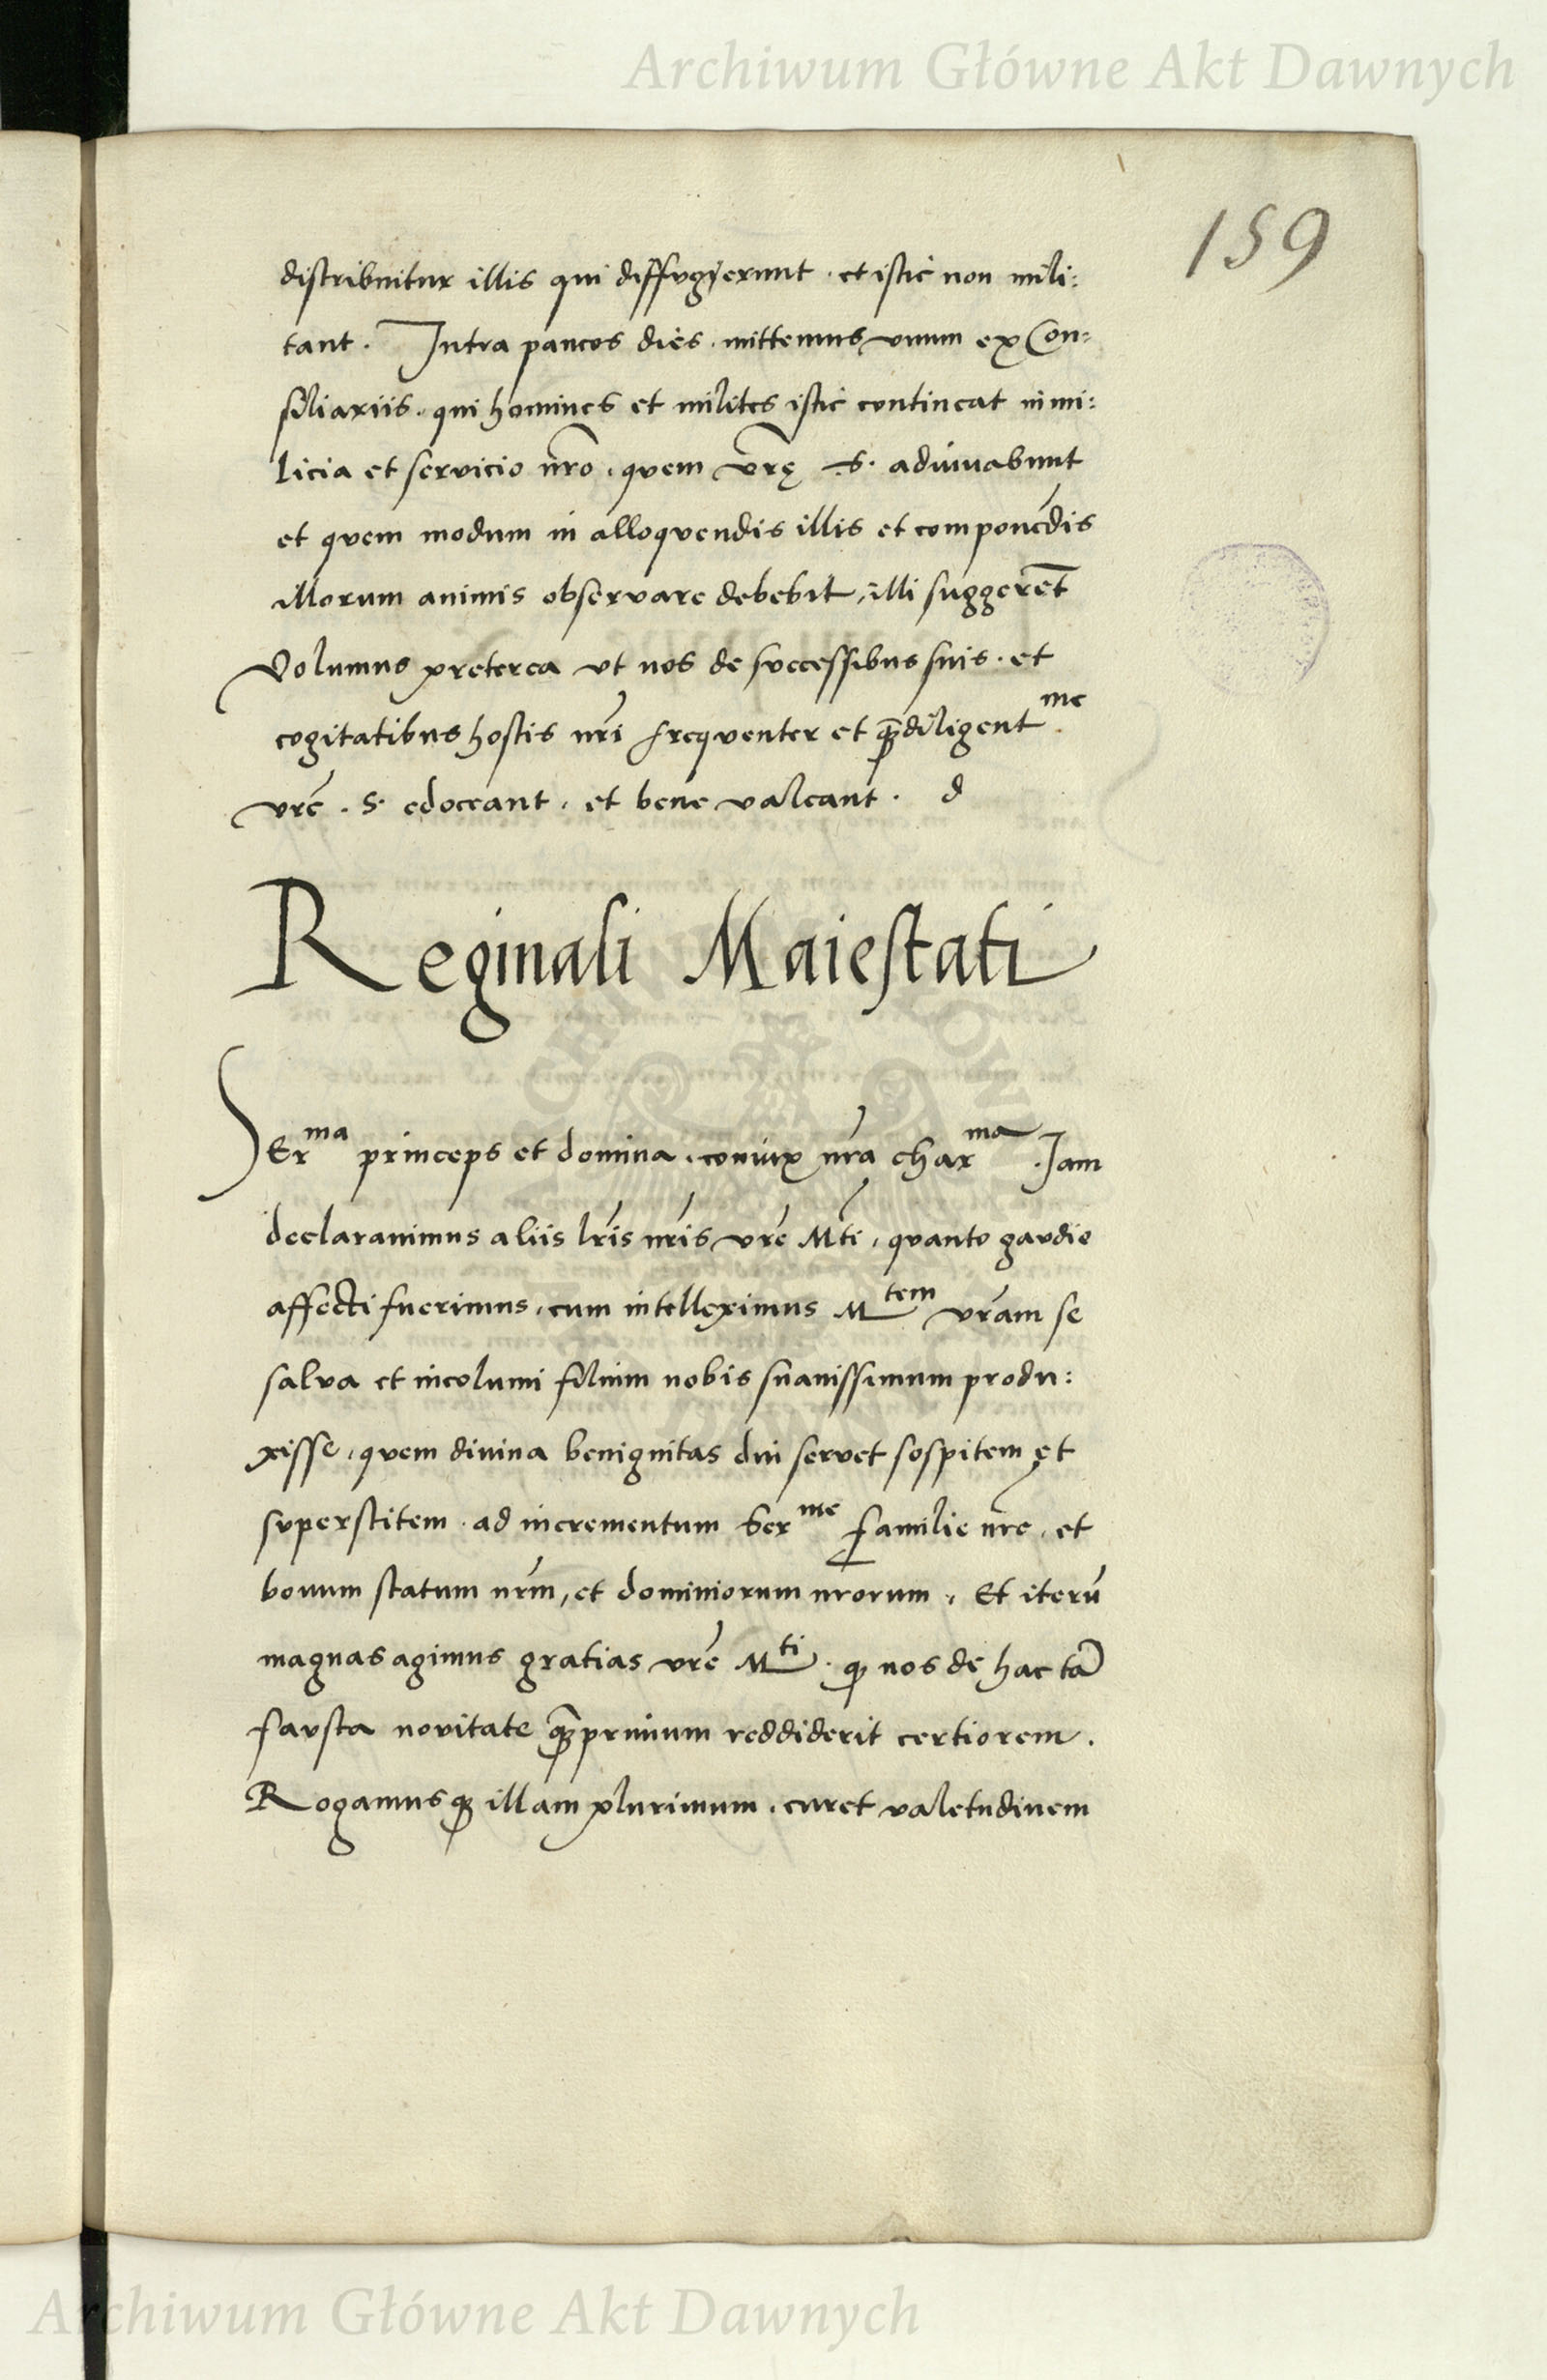 Archiwum Główne Akt Dawnych
159
distribuitur illis qui diffugierunt · et istic non mili:
tant. Intra paucos dies · mittemus vnum ex Con:
siliariis · qui homines et milites istic contineat in mi:
licia et servicio nrõ · quem vrę .S. adiuuabunt
et quem modum in alloquendis illis et componẽdis
illorum animis observare debebit, illi suggerẽt
Volumus preterea vt nos de successibus suis · et
cogitatibus hostis nrĩ frequenter et q̃diligent me
vrẽ . S. edoceant · et bene valeant .
Reginali Maiestati
SEr ma princeps et domina · coniux nrã char ma · Jam
declarauimus aliis lrĩs nrĩs vrẽ Mtĩ, quanto gaudio
affecti fuerimus · cum intelleximus M tem vrãm se
salva et incolumi filium nobis suauissimum produ:
xisse, quem diuina benignitas diu servet sospitem et
superstitem · ad incrementum Ser me familie nrẽ · et
bonum statum nrm̃, et dominiorum nrorum · Et iterũ
magnas agimus gratias vrẽ M ti · q nos de hac tã
fausta novitate q̃primum reddiderit certiorem.
Rogamusq illam plurimum · curet valetudinem
Archiwum Główne Akt Dawnych